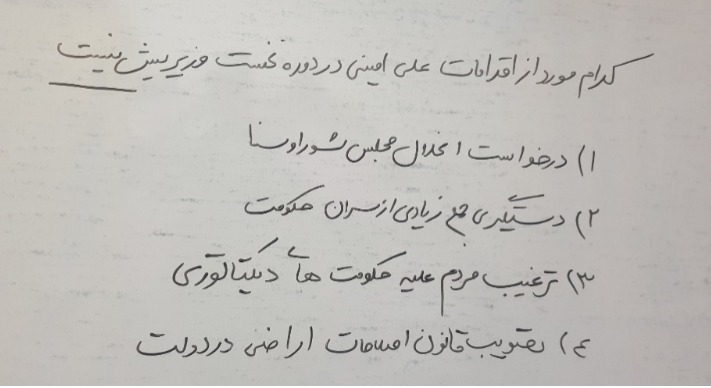 کدام مورد از اقدامات علی امینی در دوره نخست وزیریش نیست
۱) درخواست انحلال مجلس شورا و سنا
۲) دستگیری جمع زیادی از سران حکومت
۳) ترغیب مردم علیه حکومت های دیکتاتوری
۴) تصویب قانون اصلاحات اراضی در دولت